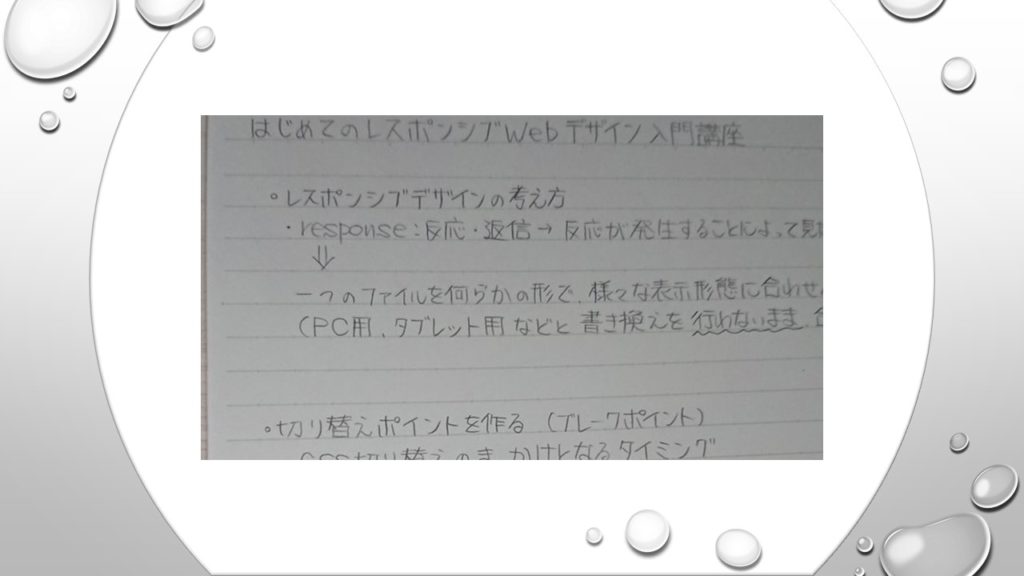 はじめてのレスポンシブWebデザイン入門講座
。レスポンシブデザインの考え方
・response:反応・返信→反応が発生することによって見
⇓
一つのファイルを何らかの形で、様々な表示形態に合わせ
(PC用、タブレット用などと書き換えを行わないまま、
。切り替えポイントを作る(ブレークポイント)
CSS切り替えのきっかけとなるタイミング